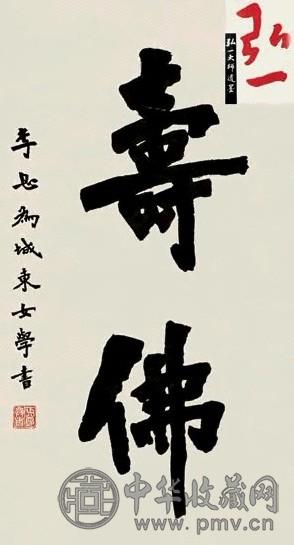 弘一
弘一大师遗墨
壽佛
李息為城東女學書
中华收藏网
www.pmv.cn